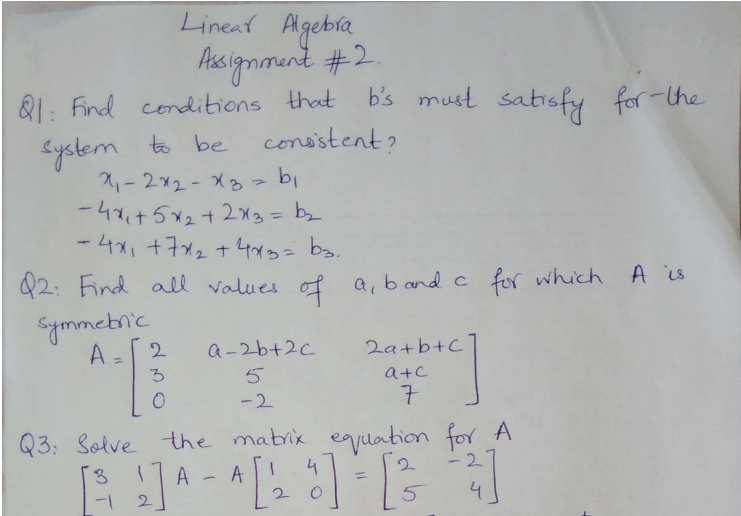 Linear Algebra
Assignment #2.
Q1: Find conditions that b's must satisfy for the
system to be consistent?
x₁ - 2x₂ - x₃ = b₁
-4x₁ + 5x₂ + 2x₃ = b₂
-4x₁ + 7x₂ + 4x₃ = b₃.
Q2: Find all values of a, b and c for which A is
symmetric
A = [ 2 a-2b+2c 2a+b+c ]
3 5 a+c
0 -2 7
Q3: Solve the matrix equation for A
[ 3 1 ] A - A [ 1 4 ] = [ 2 -2 ]
-1 2 2 0 5 4